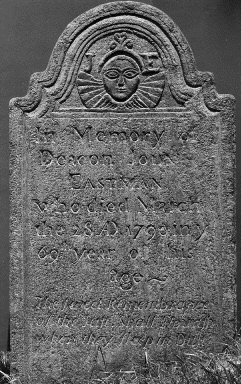 I E
In Memory of
Deacon John
EASTMAN
Who died March
the 28 AD 1793 in y
69th Year of his
Age
The sweet Remembrance
of the Just shall flourish
when they sleep in Dust